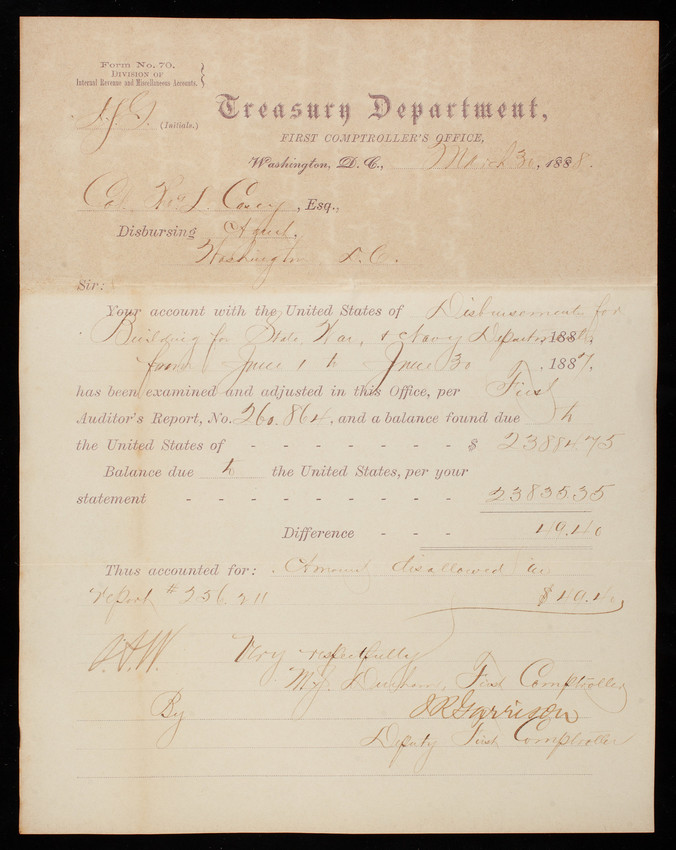 Form No. 70.
Division of
Internal Revenue and Miscellaneous Accounts,
(Initials.)
Treasury Department,
FIRST COMPTROLLER'S OFFICE,
Washington, D. C., March 30, 1888.
Col. Thos L. Casey, Esq.,
Disbursing Agent,
Washington D. C.
Sir:
Your account with the United States of Disbursements for
Building for State, War, & Navy Departments 188
from June 1 to June 30, 1887,
has been examined and adjusted in this Office, per First
Auditor's Report, No. 260.864, and a balance found due to
the United States of - - - - - - - - $ 23884.75
Balance due to the United States, per your
statement - - - - - - - - - 23835.35
Difference - - - 49.40
Thus accounted for: Amount disallowed in
report # 256.211 $49.40
Very respectfully
M. J. Durham, First Comptroller
By J R Garrison
Deputy First Comptroller